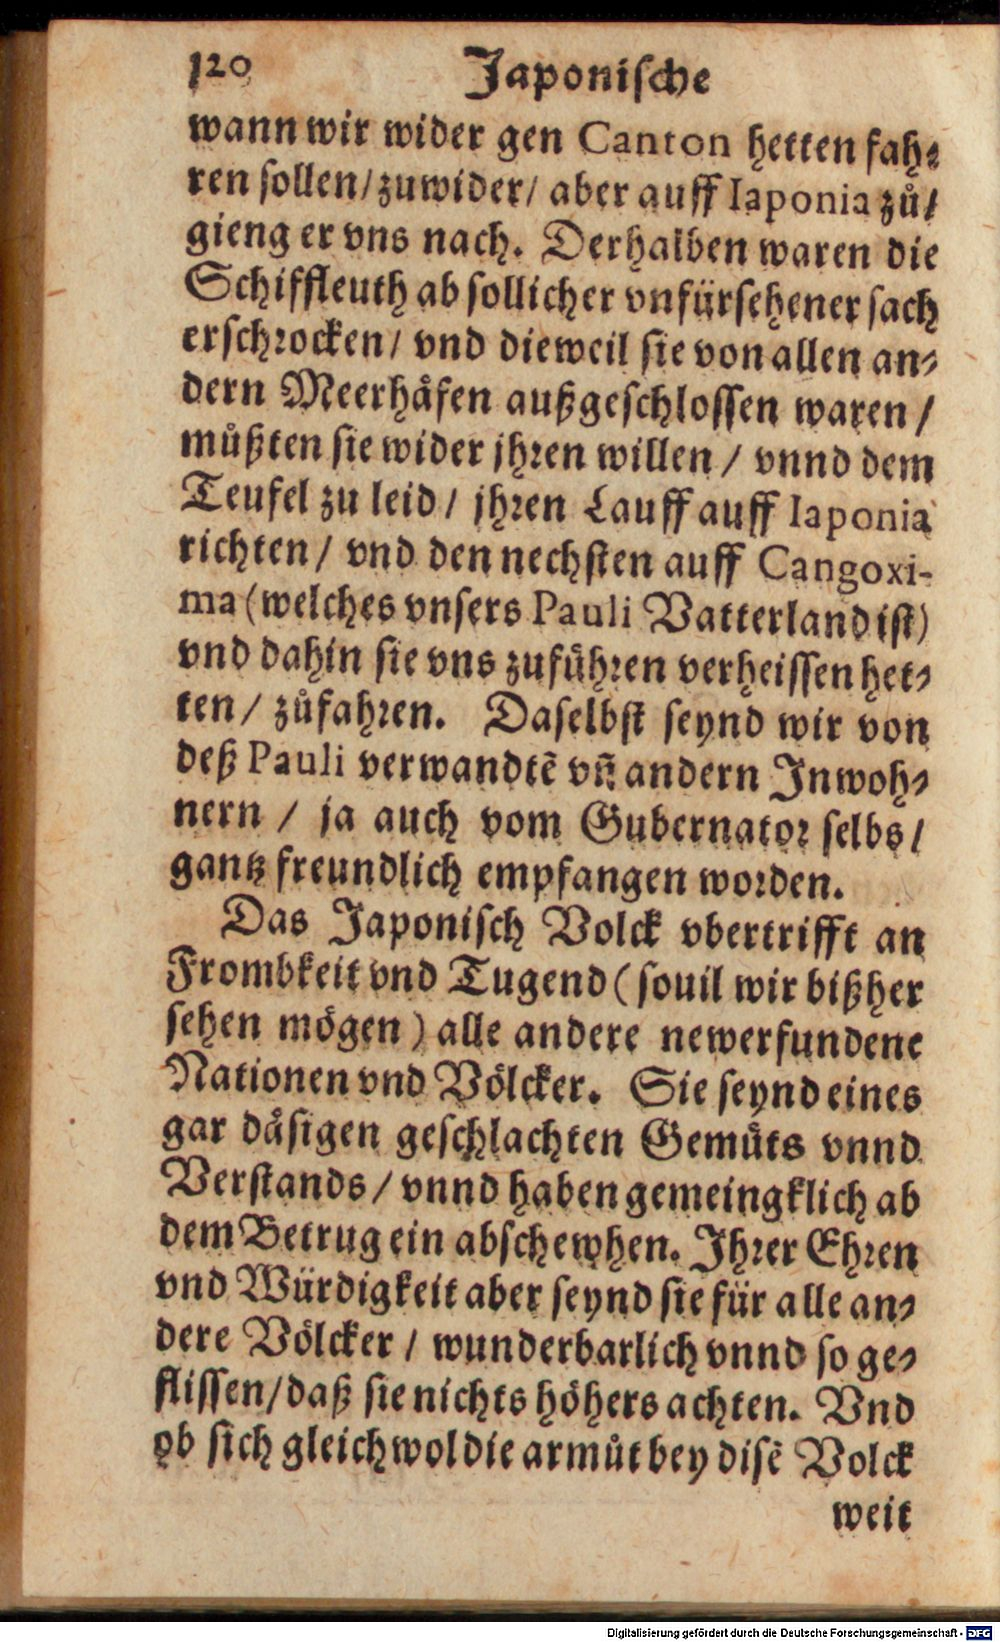 120 Japonische
wann wir wider gen Canton hetten fah⸗
ren sollen/ zuwider/ aber auff Iaponia zů/
gieng er vns nach. Derhalben waren die
Schiffleuth ab sollicher vnfürsehener sach
erschrocken/ vnd dieweil sie von allen an⸗
dern Meerhåfen außgeschlossen waren/
müßten sie wider jhren willen/ vnnd dem
Teufel zu leid/ jhren Lauff auff Iaponia
richten/ vnd den nechsten auff Cangoxi-
ma (welches vnsers Pauli Vatterland ist)
vnd dahin sie vns zuführen verheissen het⸗
ten/ zůfahren. Daselbst seynd wir von
deß Pauli verwandtē vñ andern Inwoh⸗
nern/ ja auch vom Gubernator selbs/
gantz freundlich empfangen worden.
Das Japonisch Volck vbertrifft an
Frombkeit vnd Tugend (souil wir bißher
sehen mögen) alle andere newerfundene
Nationen vnd Völcker. Sie seynd eines
gar dåsigen geschlachten Gemüts vnnd
Verstands/ vnnd haben gemeingklich ab
dem Betrug ein abschewhen. Ihrer Ehren
vnd Würdigkeit aber seynd sie für alle an⸗
dere Völcker/ wunderbarlich vnnd so ge⸗
flissen/ daß sie nichts höhers achten. Vnd
ob sich gleichwol die armůt bey disē Volck
weit
Digitalisierung gefördert durch die Deutsche Forschungsgemeinschaft - DFG